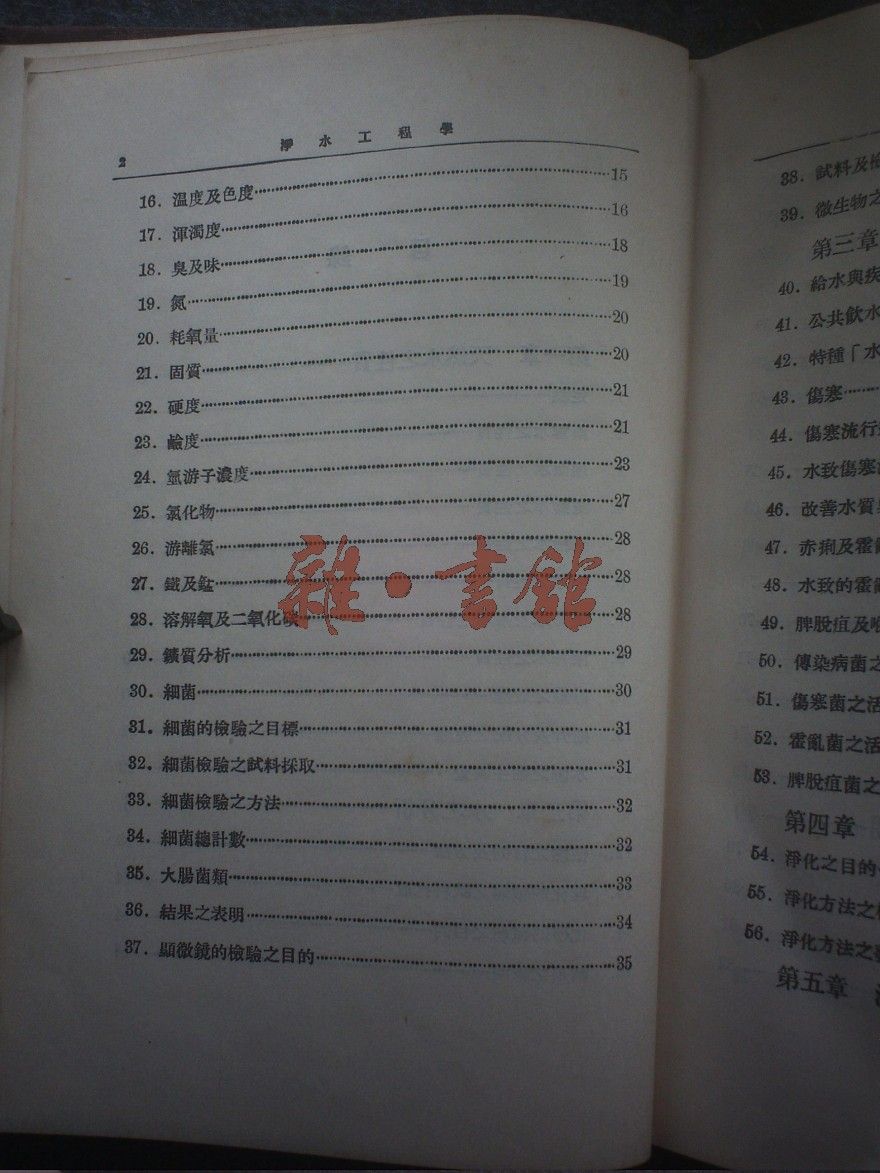 2 淨水工程學
16. 温度及色度 15
17. 渾濁度 16
18. 臭及味 18
19. 氮 19
20. 耗氧量 20
21. 固質 20
22. 硬度 21
23. 鹼度 21
24. 氫游子濃度 23
25. 氯化物 27
26. 游離氯 28
27. 鐵及錳 28
28. 溶解氧及二氧化碳 28
29. 鑛質分析 29
30. 細菌 30
31. 細菌的檢驗之目標 31
32. 細菌檢驗之試料採取 31
33. 細菌檢驗之方法 32
34. 細菌總計數 32
35. 大腸菌類 33
36. 結果之表明 34
37. 顯微鏡的檢驗之目的 35
雜·書館
38. 試料及檢
39. 微生物之
第三章
40. 給水與疾
41. 公共飲水
42. 特種「水
43. 傷寒
44. 傷寒流行
45. 水致傷寒
46. 改善水質
47. 赤痢及霍亂
48. 水致的霍亂
49. 脾脫疽及
50. 傳染病菌之
51. 傷寒菌之活
52. 霍亂菌之活
53. 脾脫疽菌之
第四章
54. 淨化之目的
55. 淨化方法之
56. 淨化方法之
第五章